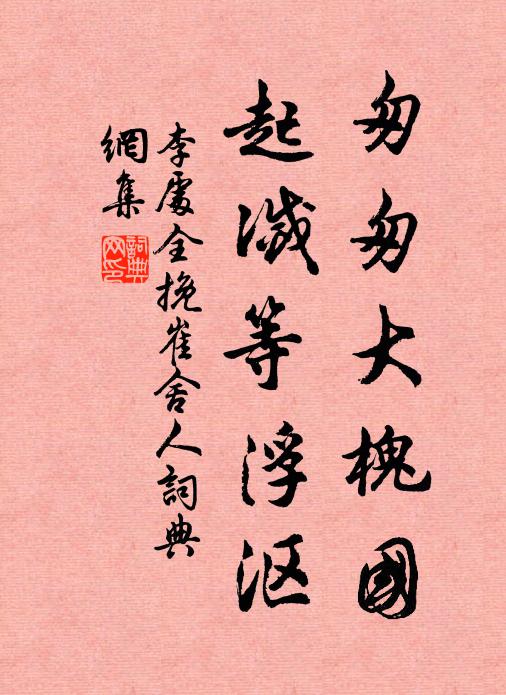 匆匆大槐國
起滅等浮沤
李處全挽崔舍人詞典
網集
詞典
网印